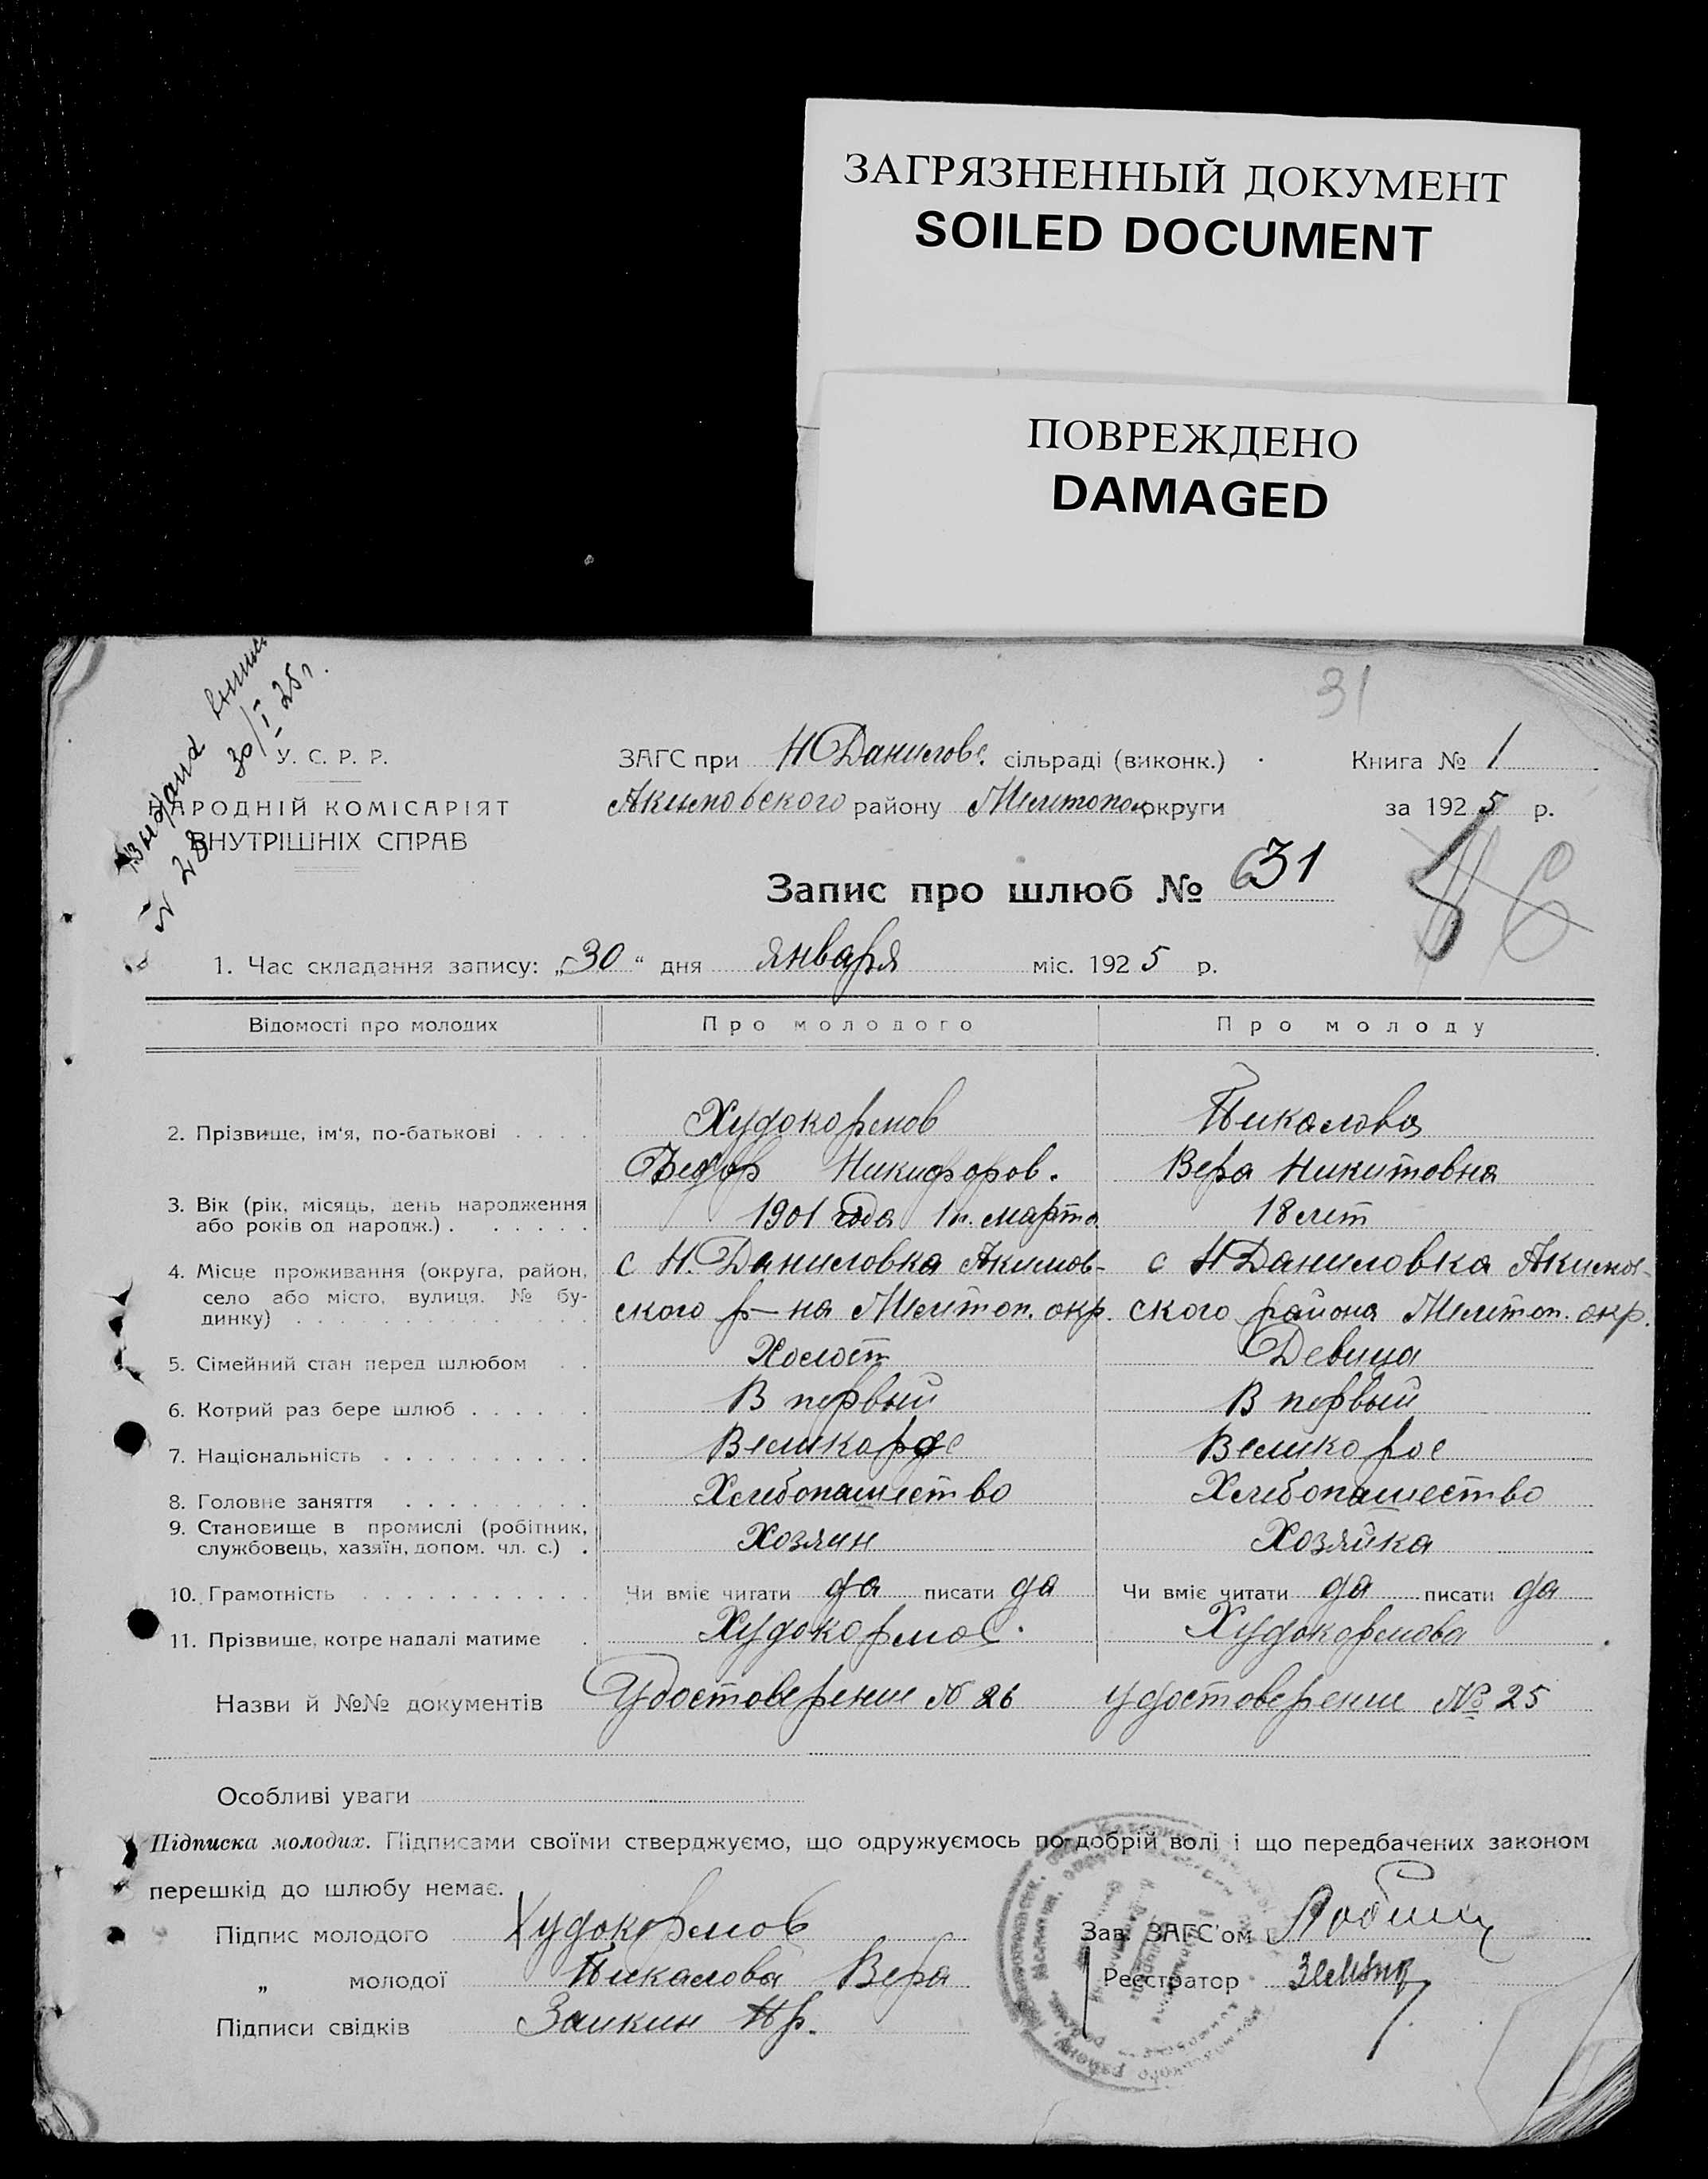 ЗАГРЯЗНЕННЫЙ ДОКУМЕНТ
SOILED DOCUMENT
ПОВРЕЖДЕНО
DAMAGED
31
Выдана выпись
№ 28 30/I 25 г.
У. С. Р. Р.
НАРОДНІЙ КОМІСАРІЯТ
ВНУТРІШНІХ СПРАВ
ЗАГС при Н Данилове. сільраді (виконк.)
Книга № 1
Акимовского району Мелитопол округи
за 1925 р.
Запис про шлюб № 31
1. Час складання запису: „30“ дня января міс. 1925 р.
Відомості про молодих Про молодого Про молоду
2. Прізвище, ім‘я, по-батькові Худокормов Пикалова
Федор Никифоров. Вера Никитовна
3. Вік (рік, місяць, день народження
або років од народж.) 1901 года 1 п. марта 18 лет
4. Місце проживання (округа, район, с Н. Даниловка Акимов- с Н Даниловка Акимов-
село або місто, вулиця. № бу- ского р-на Мелитоп. окр. ского района Мелитоп. окр.
динку)
5. Сімейний стан перед шлюбом Холост Девица
6. Котрий раз бере шлюб В первый В первый
7. Національність Великорос Великорос
8. Головне заняття Хлебопашество Хлебопашество
9. Становище в промислі (робітник,
службовець, хазяїн, допом. чл. с.) Хозяин Хозяйка
10. Грамотність Чи вміє читати да писати да Чи вміє читати да писати да
11. Прізвище, котре надалі матиме Худокормов. Худокормова
Назви й №№ документів Удостоверение № 26 удостоверение № 25
Особливі уваги
Підписка молодих. Підписами своїми стверджуємо, що одружуємось по добрій волі і що передбачених законом
перешкід до шлюбу немає.
Підпис молодого Худокормов Зав. ЗАГС'ом
„ молодої Пикалова Вера Реєстратор
Підписи свідків Заикин